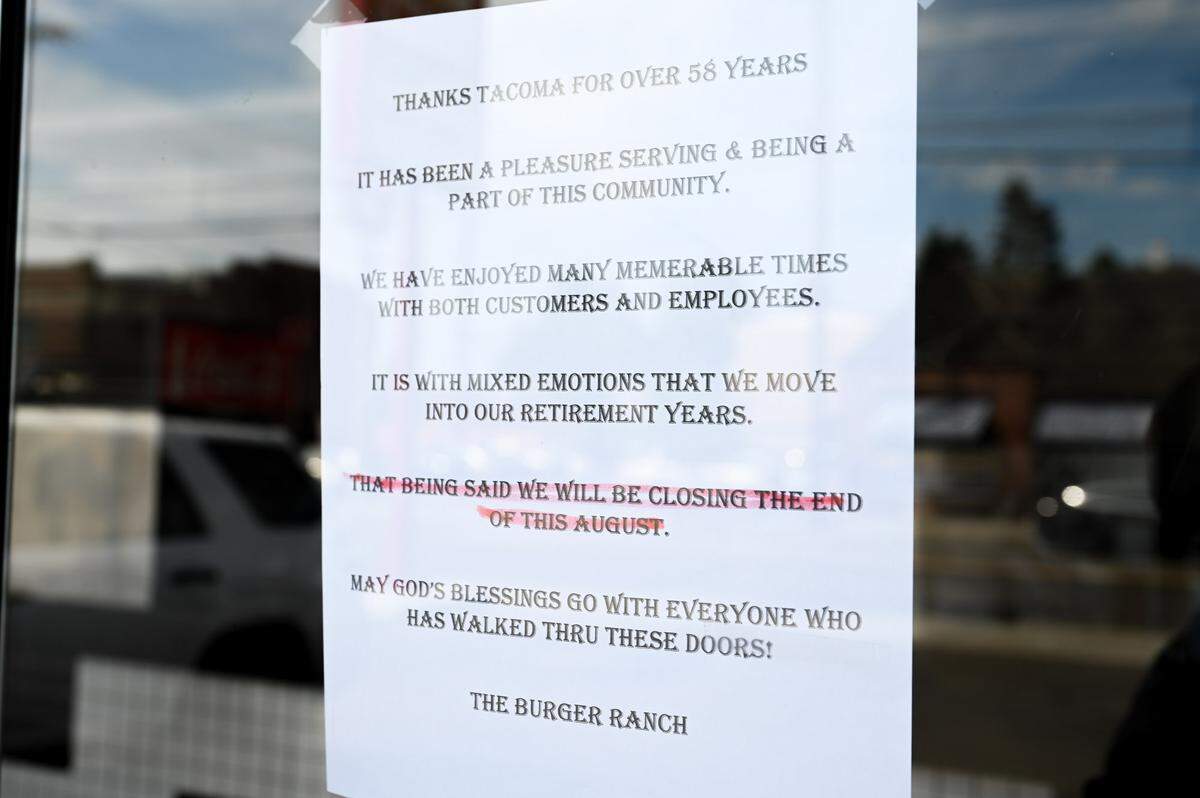 THANKS TACOMA FOR OVER 58 YEARS
IT HAS BEEN A PLEASURE SERVING & BEING A
PART OF THIS COMMUNITY.
WE HAVE ENJOYED MANY MEMERABLE TIMES
WITH BOTH CUSTOMERS AND EMPLOYEES.
IT IS WITH MIXED EMOTIONS THAT WE MOVE
INTO OUR RETIREMENT YEARS.
THAT BEING SAID WE WILL BE CLOSING THE END
OF THIS AUGUST.
MAY GOD'S BLESSINGS GO WITH EVERYONE WHO
HAS WALKED THRU THESE DOORS!
THE BURGER RANCH